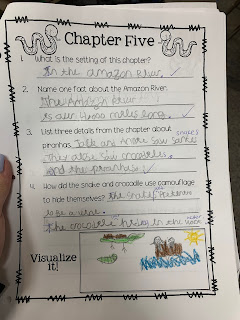 Chapter Five
1. What is the setting of this chapter?
In the amazon River.
2. Name one fact about the Amazon River.
The Amazon River
is over 4000 miles long.
3. List three details from the chapter about
snakes
piranhas. Jack and Annie saw
They also saw crocodiles.
and the piranhas
4. How did the snake and crocodile use camouflage
to hide themselves? The snake
to be a vine.
water
The crocodile in the
Visualize
it!